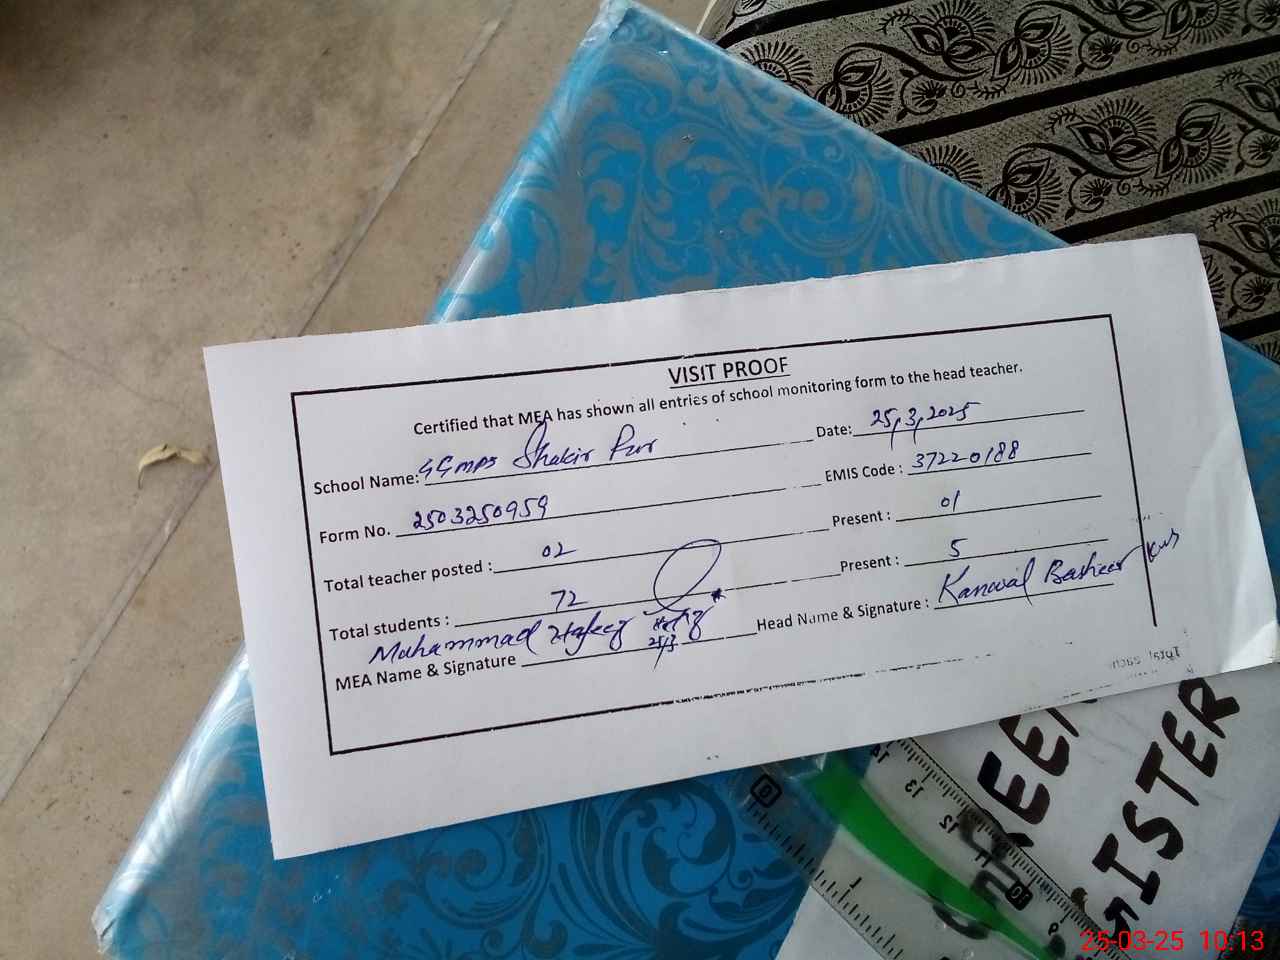 VISIT PROOF
Certified that MEA has shown all entries of school monitoring form to the head teacher.
School Name: GGMPS Shakir Pur Date: 25,3,2025
Form No. 2503250959 EMIS Code : 37220188
Total teacher posted : 02 Present : 01
Total students : 72 Present : 5
MEA Name & Signature Muhammad Hafeez 25/3 Head Name & Signature : Kanwal Basheer
ISTER
14 13 12 11 10 9
0 1
25-03-25 10:13